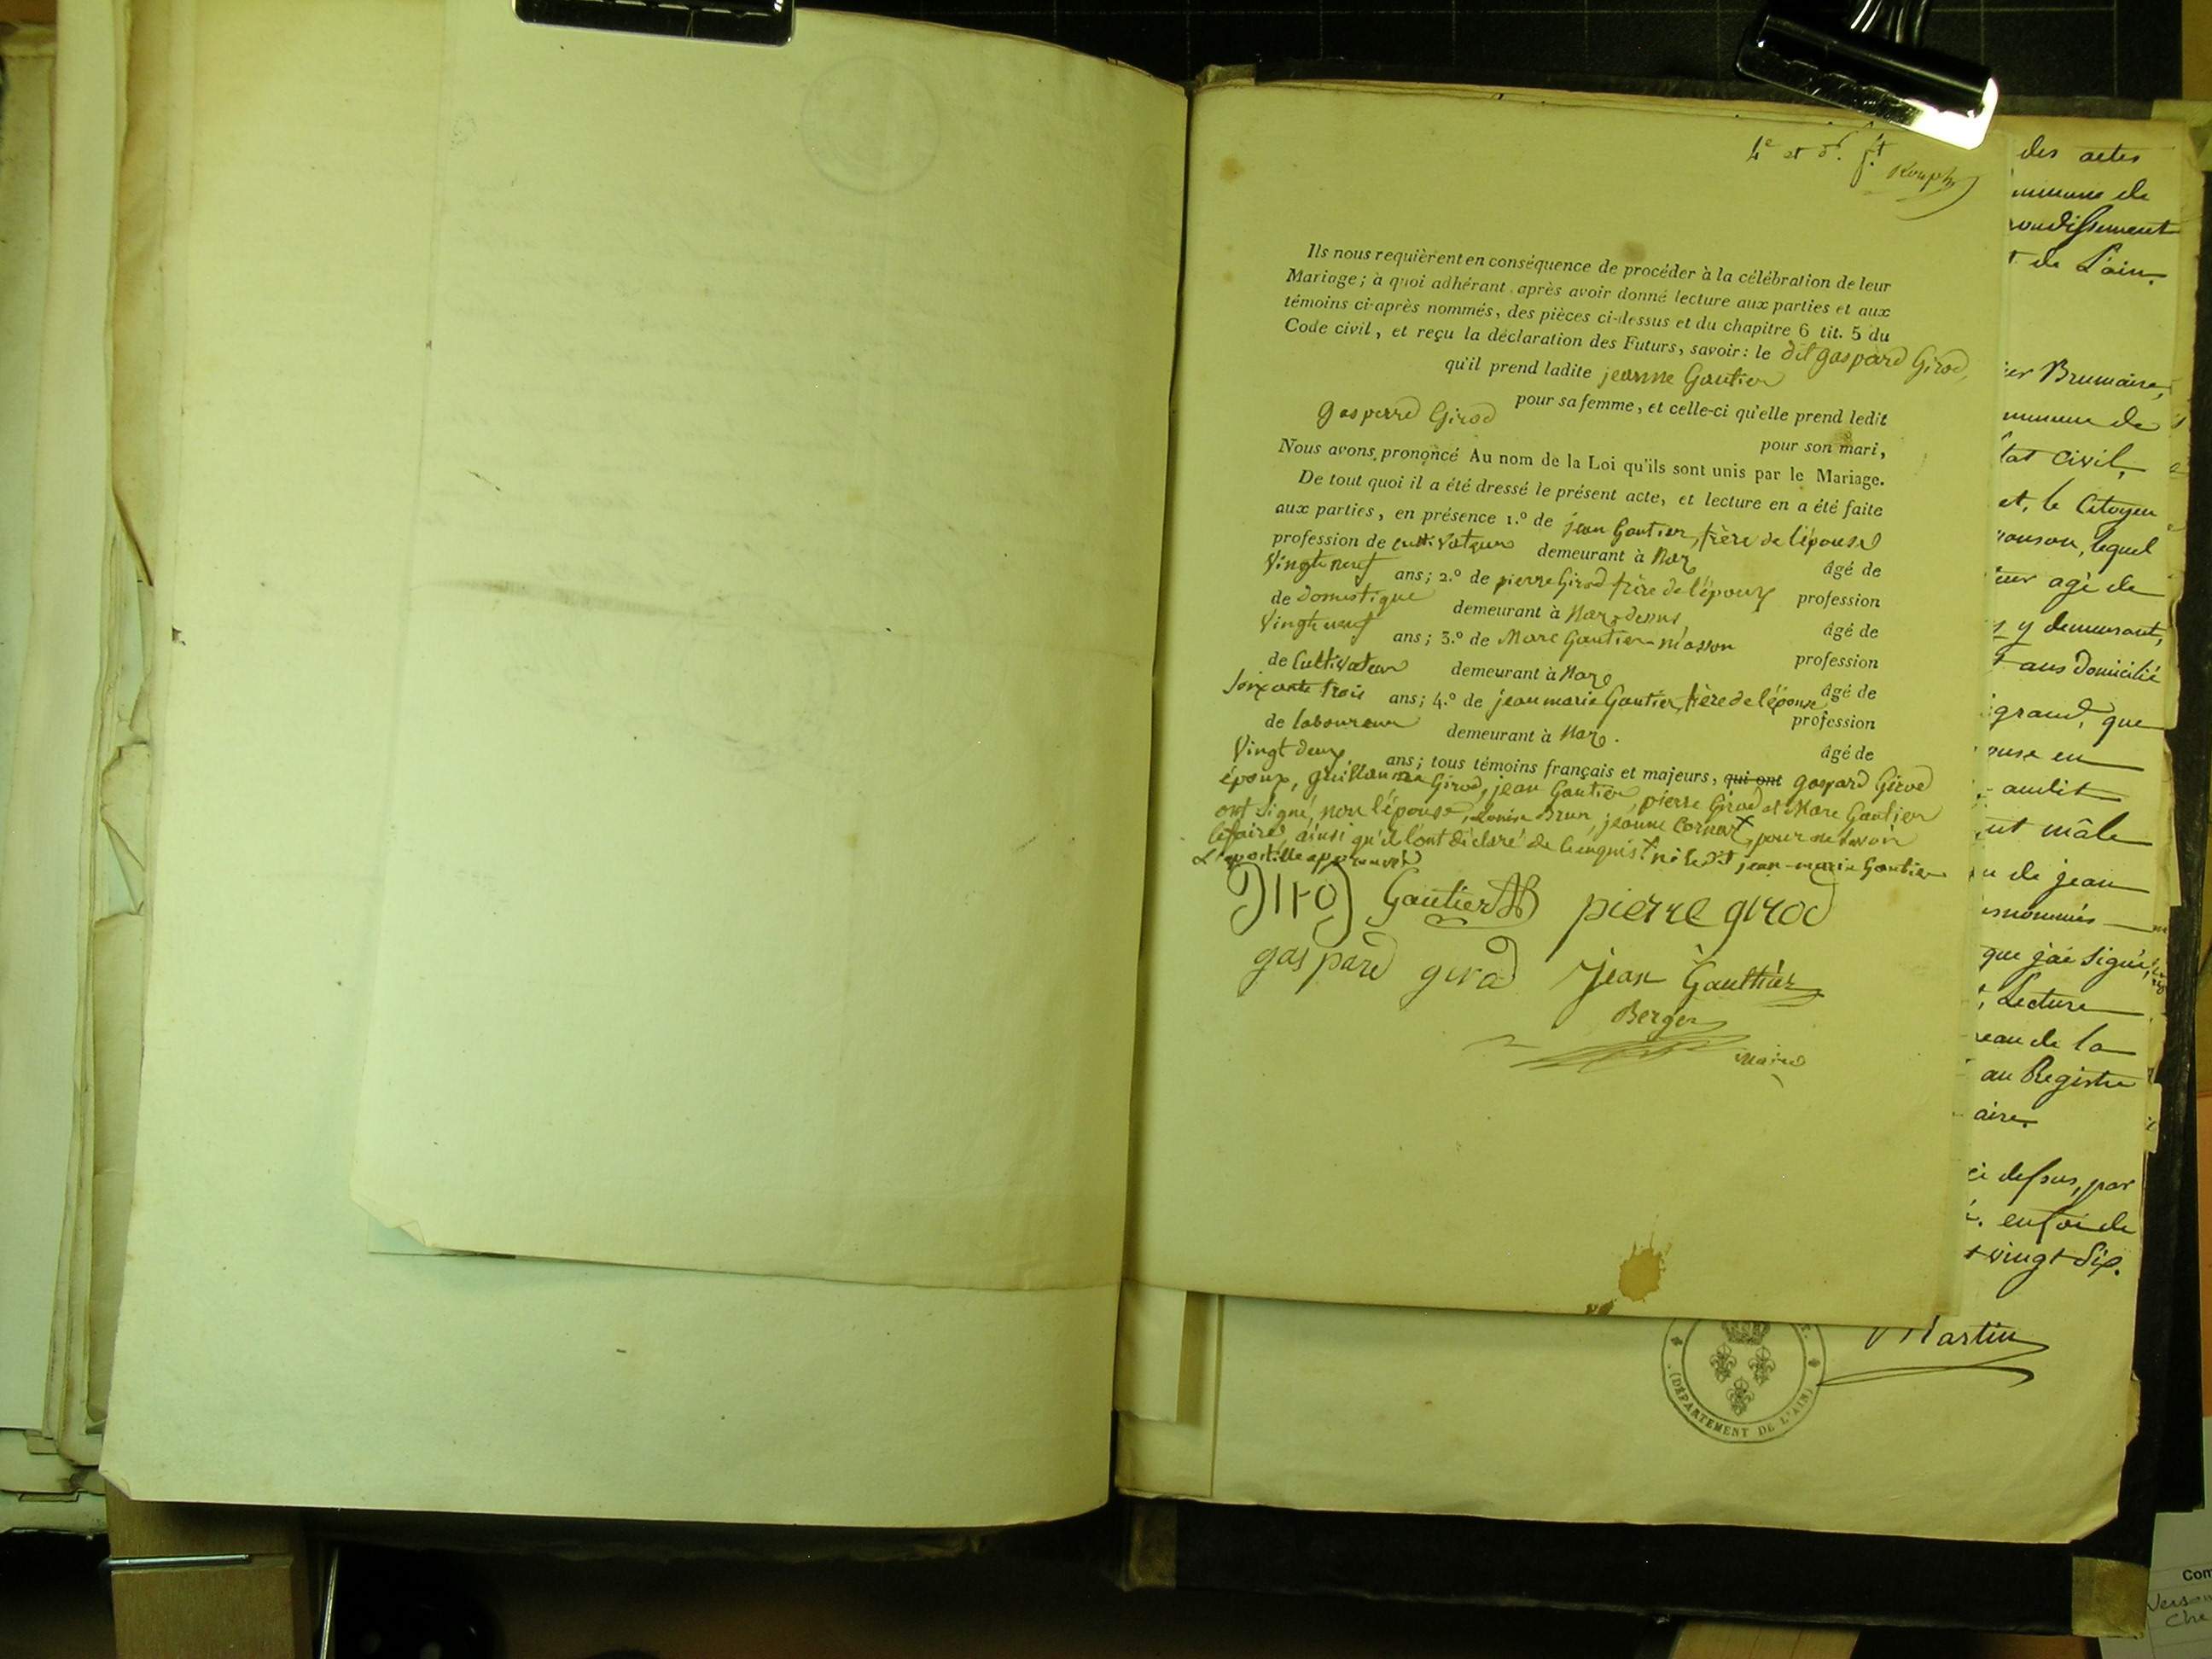 4e et d. f.t
Rouph
Ils nous requièrent en conséquence de procéder à la célébration de leur
Mariage ; à quoi adhérant après avoir donné lecture aux parties et aux
témoins ci-après nommés, des pièces ci-dessus et du chapitre 6 tit. 5 du
Code civil, et reçu la déclaration des Futurs, savoir : le dit gaspard Girod,
qu'il prend ladite jeanne Gautier
pour sa femme, et celle-ci qu'elle prend ledit
gasperd Girod
pour son mari,
Nous avons prononcé Au nom de la Loi qu'ils sont unis par le Mariage.
De tout quoi il a été dressé le présent acte, et lecture en a été faite
aux parties, en présence 1.º de jean Gautier, frère de l'épouse
profession de cultivateur demeurant à Naz âgé de
Vingt neuf ans ; 2.º de pierre Girod frère de l'époux profession
de Domestique demeurant à Naz-dessus âgé de
Vingt neuf ans ; 3.º de Marc Gautier-masson profession
de Cultivateur demeurant à Naz âgé de
Soixante trois ans ; 4.º de jean marie Gautier, frère de l'épouse profession
de laboureur demeurant à Naz. âgé de
Vingt deux ans ; tous témoins français et majeurs, qui ont gaspard Girod
époux, guillaume Girod, jean Gautier, pierre Girod et Marc Gautier
ont signé, non l'épouse, Louise Brun, jeanne Cornaz x pour ne savoir
le faire, ainsi qu'il l'ont déclaré de ce enquis. x ni le dt jean-marie Gautier
L'apostille approuvée
Girod Gautier pierre girod
gaspard girod jean Gautthier
Berger
maire
des actes
mmune de
ondissement
t de L'ain.
ier Brumaire,
mmune de
tat civil,
et, le Citoyen
lequel
agé de
y demeurant,
ans Domicilié
grand, que
ouse en
audit
nt mâle
n de jean
snommés
que j'ai signé,
, Lecture
eau de la
au Registre
aire.
ci dessus, par
. en foi de
t vingt dix.
Martin
(DÉPARTEMENT DE L'AIN)
Com
Verso
Che